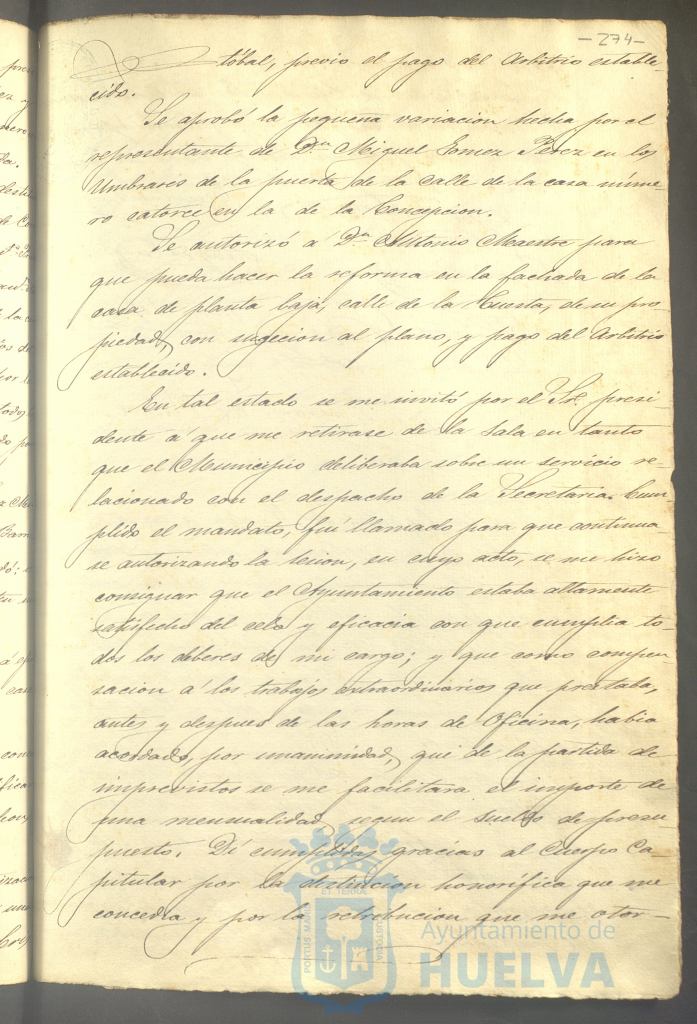 -274-
tóbal, previo el pago del Arbitrio estable-
cido.
Se aprobó la pequeña variacion hecha por el
representante de Dn. Miguel Gomez Perez en los
Umbrares de la puerta de la calle de la casa núme
ro catorce en la de la Concepcion.
Se autorizó á Dn. Antonio Maestre para
que pueda hacer la reforma en la fachada de la
casa de planta baja, calle de la Cuesta, de su pro
piedad, con sugecion al plano, y pago del Arbitrio
establecido.
En tal estado se me invitó por el Sr. presi-
dente á que me retirase de la Sala en tanto
que el Municipio deliberaba sobre un servicio re-
lacionado con el despacho de la Secretaria. Cum
plido el mandato, fuí llamado para que continua-
se autorizando la sesion, en cuyo acto, se me hizo
consignar que el Ayuntamiento estaba altamente
satisfecho del celo y eficacia con que cumplia to-
dos los deberes de mi cargo; y que como compen-
sacion á los trabajos extraordinarios que prestaba,
antes y despues de las horas de oficina, habia
acordado, por unanimidad, que de la partida de
imprevistos se me facilitara el importe de
una mensualidad segun el sueldo de presu
puesto. Dí cumplidas gracias al Cuerpo Ca
pitular por la distincion honorífica que me
concedia y por la retribucion que me otor-
Ayuntamiento de
HUELVA
PORTUS MARIS
ET TERRAE
CUSTODIA